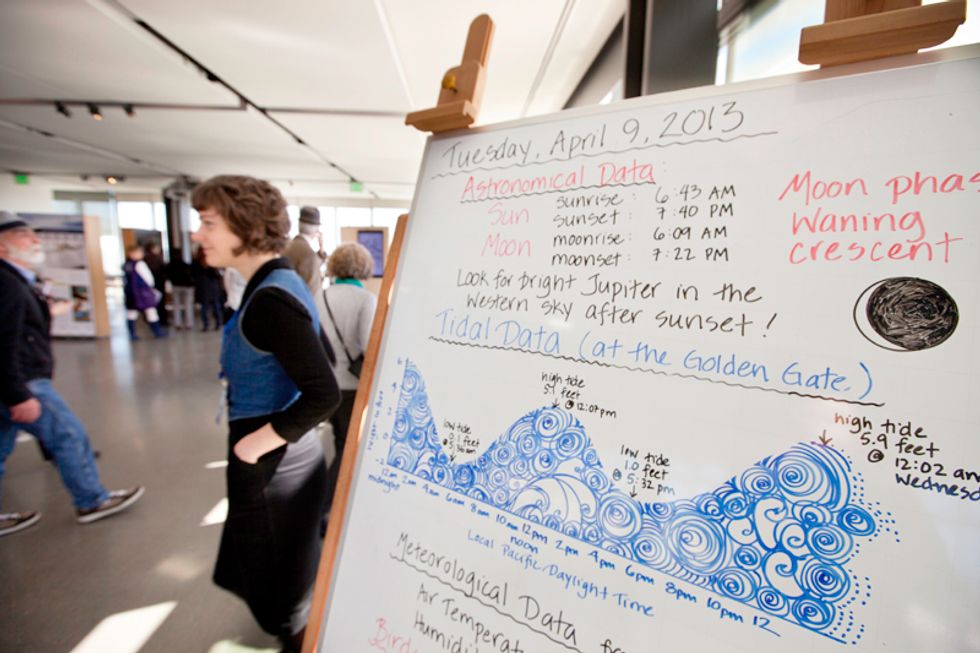 Tuesday, April 9, 2013
Astronomical Data:
Sun sunrise: 6:43 AM
sunset: 7:40 PM
Moon moonrise: 6:09 AM
moonset: 7:22 PM
Moon phas
Waning
crescent
Look for bright Jupiter in the
Western sky after sunset!
Tidal Data (at the Golden Gate.)
high tide
5.1 feet
@ 12:07pm
low tide
0.1 feet
@ 5:36am
low tide
1.0 feet
@ 5:32 pm
high tide
5.9 feet
@ 12:02 am
Wednesd
6
4
2
0
-2
12am 2am 4am 6am 8am 10am 12pm 2pm 4pm 6pm 8pm 10pm 12
midnight noon
Local Pacific Daylight Time
Meteorological Data
Air Temperat
Humidi
Bird